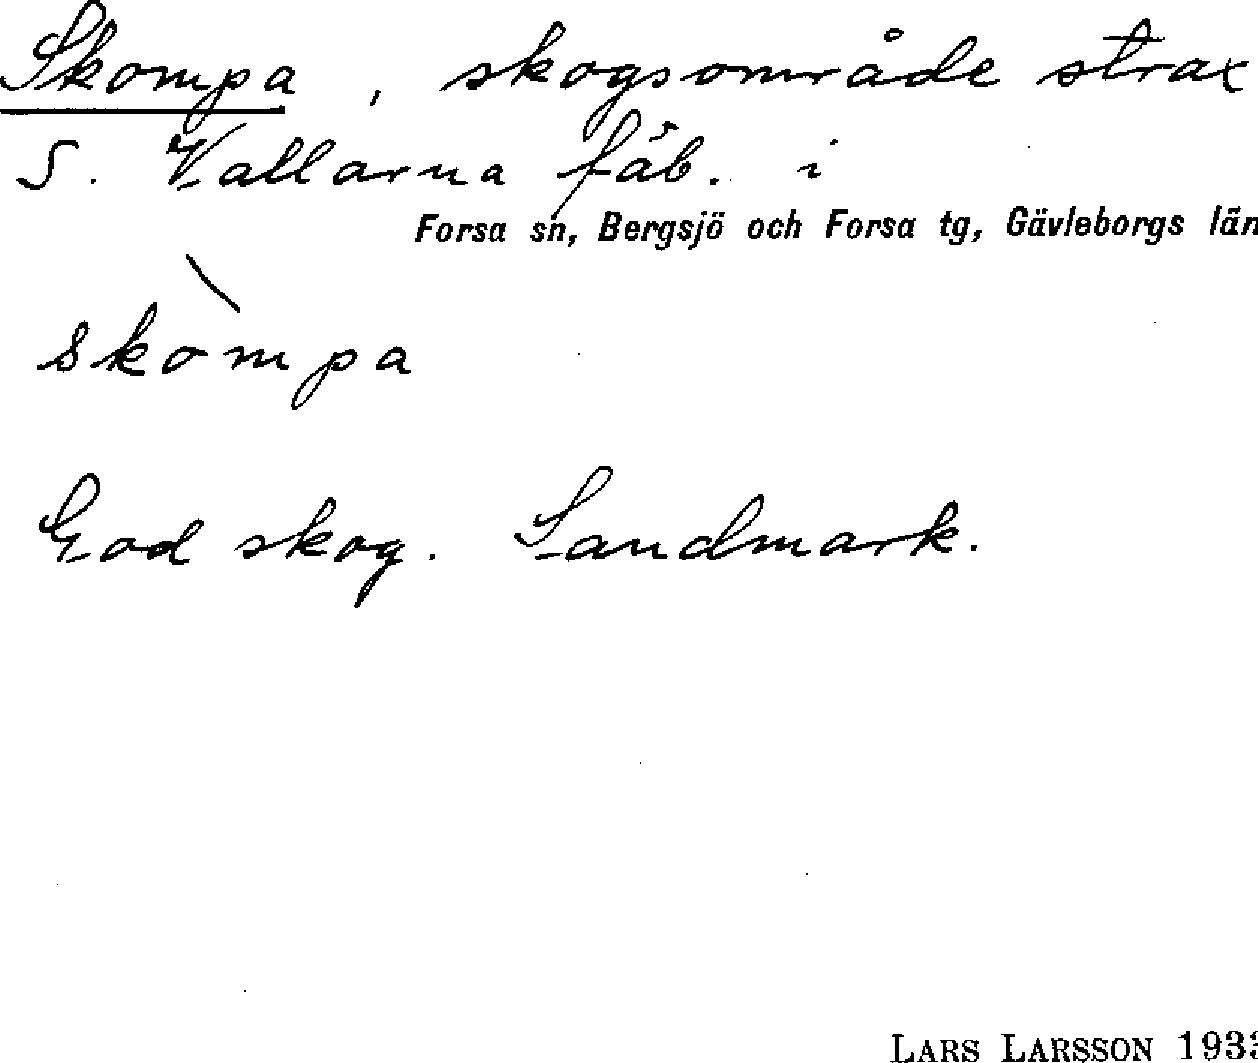 Skompa, skogsområde strax
S. Vallarna fäb. i
Forsa sn, Bergsjö och Forsa tg, Gävleborgs län
skòmpa
God skog. Sandmark.
LARS LARSSON